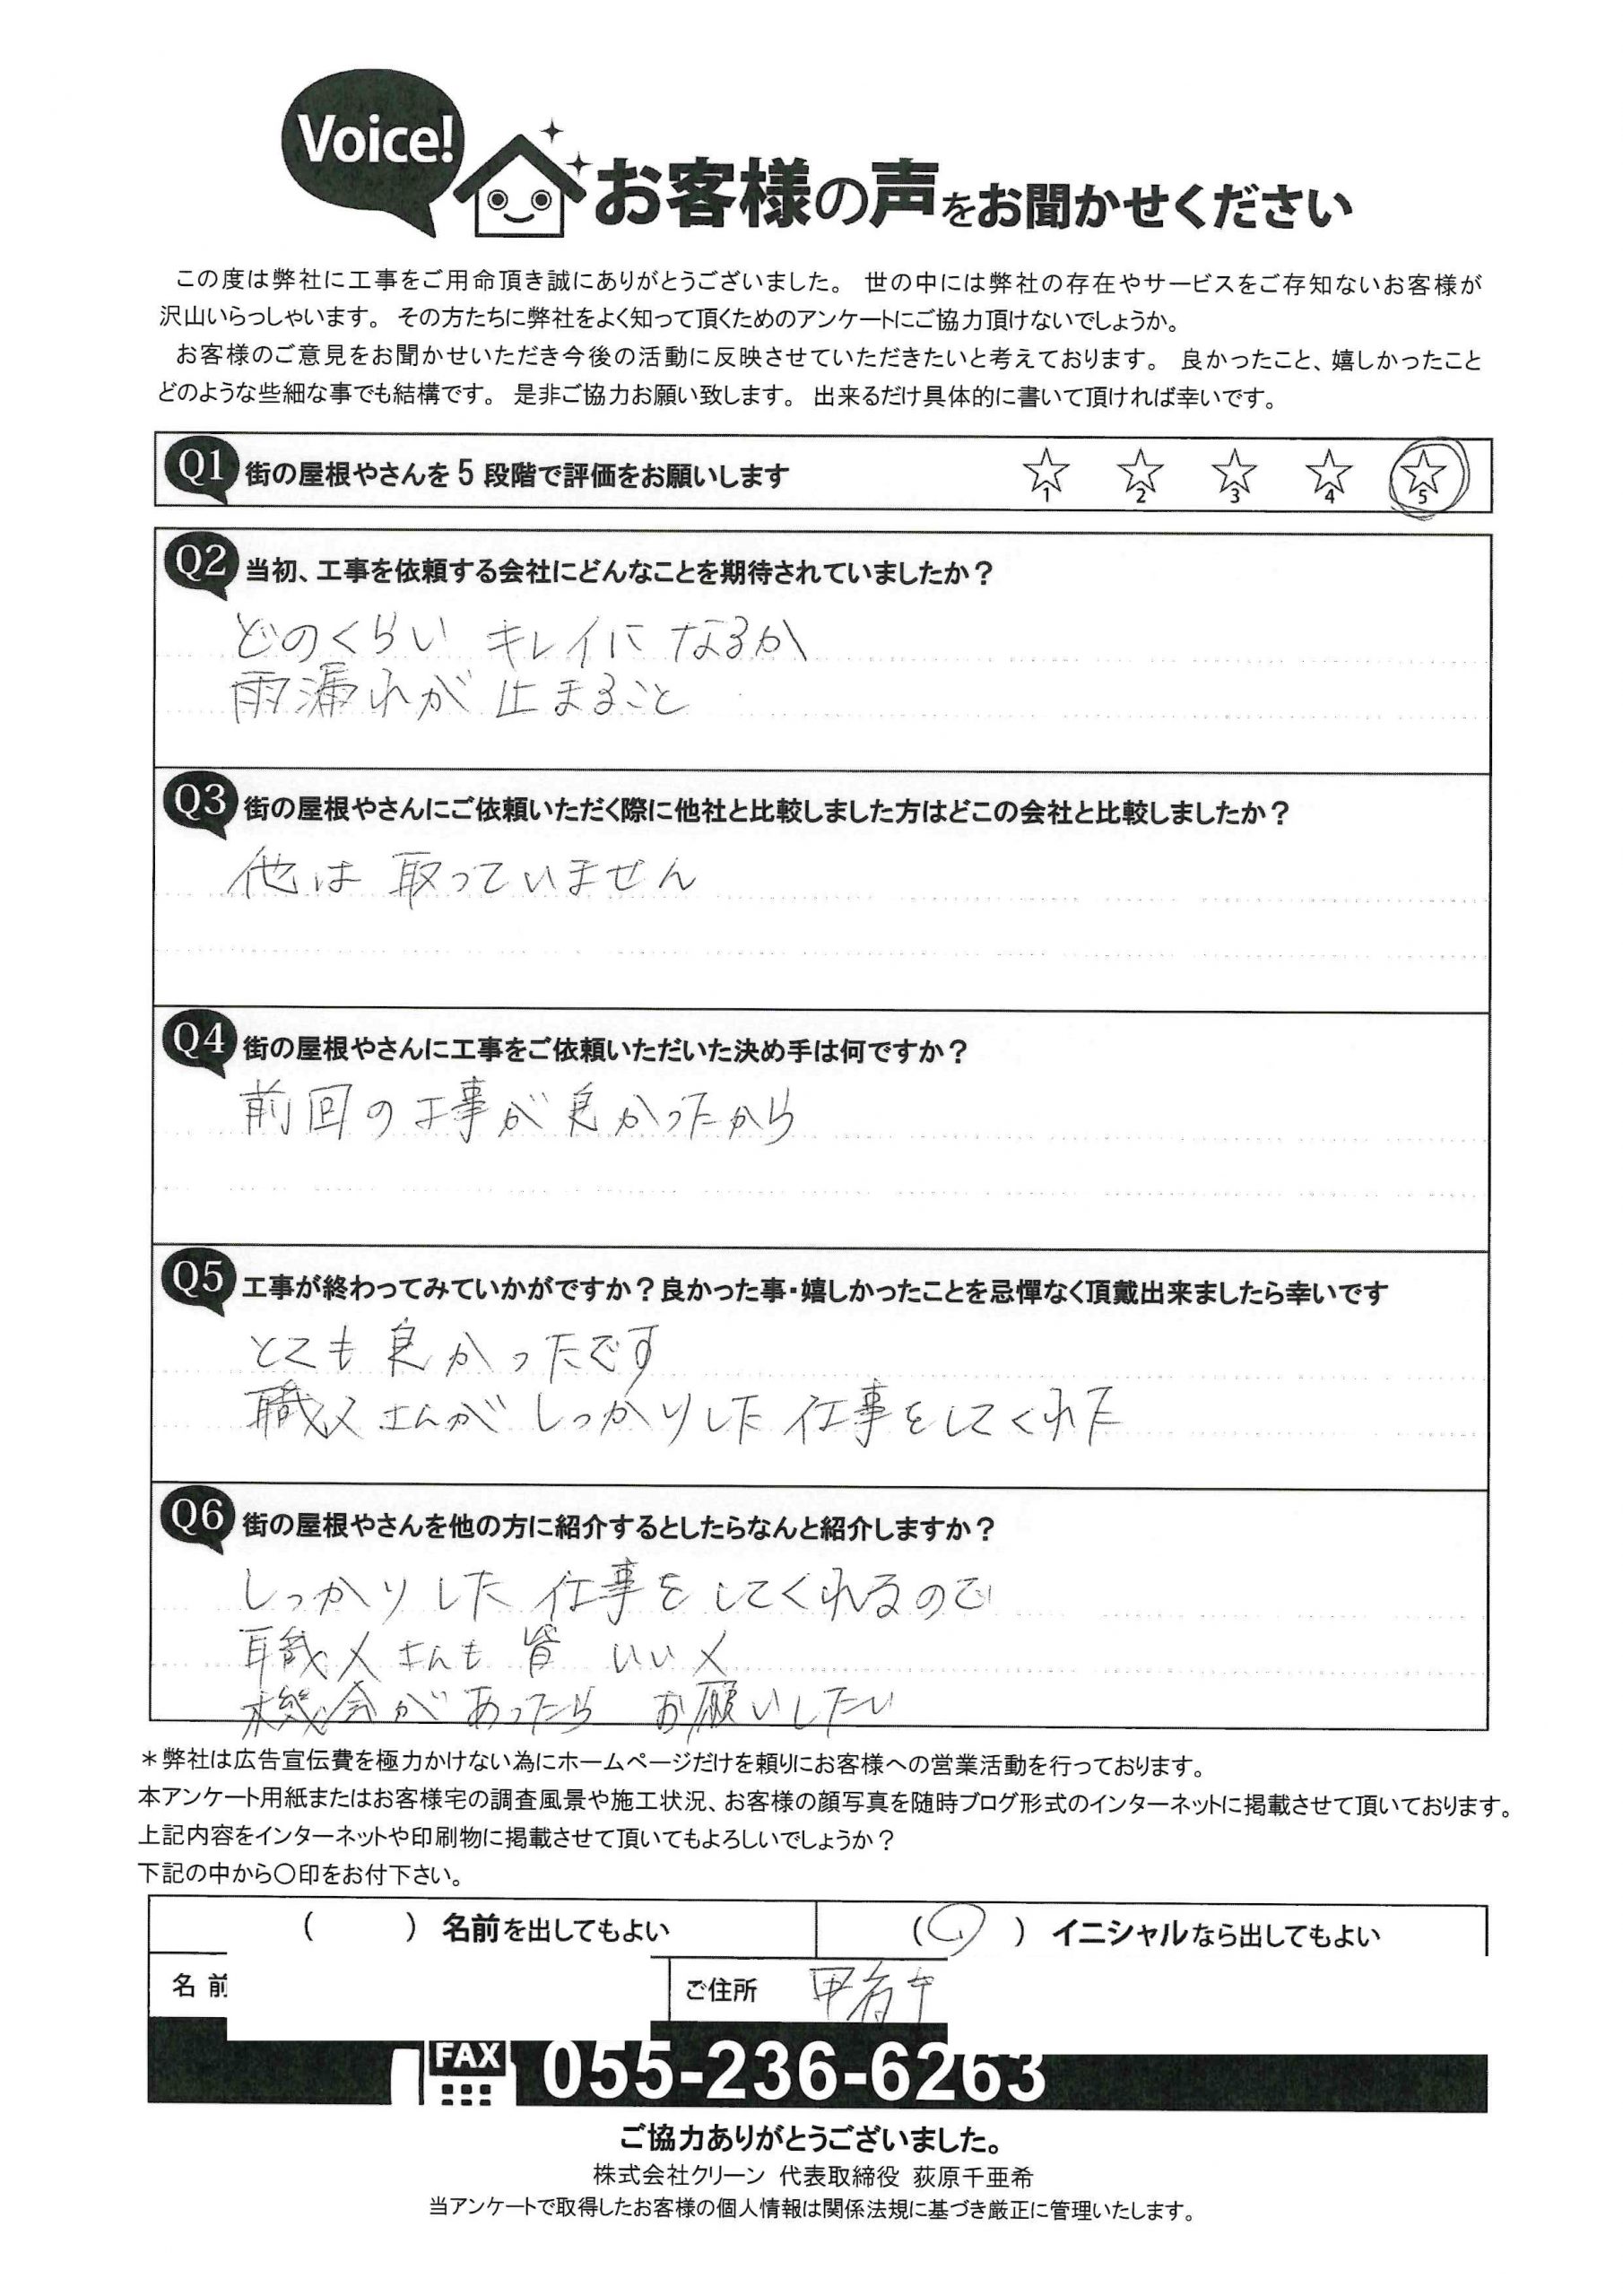 Voice!
お客様の声をお聞かせください
この度は弊社に工事をご用命頂き誠にありがとうございました。 世の中には弊社の存在やサービスをご存知ないお客様が
沢山いらっしゃいます。 その方たちに弊社をよく知って頂くためのアンケートにご協力頂けないでしょうか。
お客様のご意見をお聞かせいただき今後の活動に反映させていただきたいと考えております。 良かったこと、嬉しかったこと
どのような些細な事でも結構です。 是非ご協力お願い致します。 出来るだけ具体的に書いて頂ければ幸いです。
Q1 街の屋根やさんを5段階で評価をお願いします ☆1 ☆2 ☆3 ☆4 ☆5
Q2 当初、工事を依頼する会社にどんなことを期待されていましたか？
どのくらい キレイに なるか
雨漏れが 止まること
Q3 街の屋根やさんにご依頼いただく際に他社と比較しました方はどこの会社と比較しましたか？
他は 取っていません
Q4 街の屋根やさんに工事をご依頼いただいた決め手は何ですか？
前回の工事が良かったから
Q5 工事が終わってみていかがですか？良かった事・嬉しかったことを忌憚なく頂戴出来ましたら幸いです
とても良かったです
職人さんが しっかりした 仕事をしてくれた
Q6 街の屋根やさんを他の方に紹介するとしたらなんと紹介しますか？
しっかりした 仕事を してくれるので
職人さんも 皆 いい人
機会が あったら お願いしたい
＊弊社は広告宣伝費を極力かけない為にホームページだけを頼りにお客様への営業活動を行っております。
本アンケート用紙またはお客様宅の調査風景や施工状況、お客様の顔写真を随時ブログ形式のインターネットに掲載させて頂いております。
上記内容をインターネットや印刷物に掲載させて頂いてもよろしいでしょうか？
下記の中から〇印をお付下さい。
（　　）名前を出してもよい （〇）イニシャルなら出してもよい
名前 ご住所 甲府市
FAX 055-236-6263
ご協力ありがとうございました。
株式会社クリーン 代表取締役 荻原千亜希
当アンケートで取得したお客様の個人情報は関係法規に基づき厳正に管理いたします。